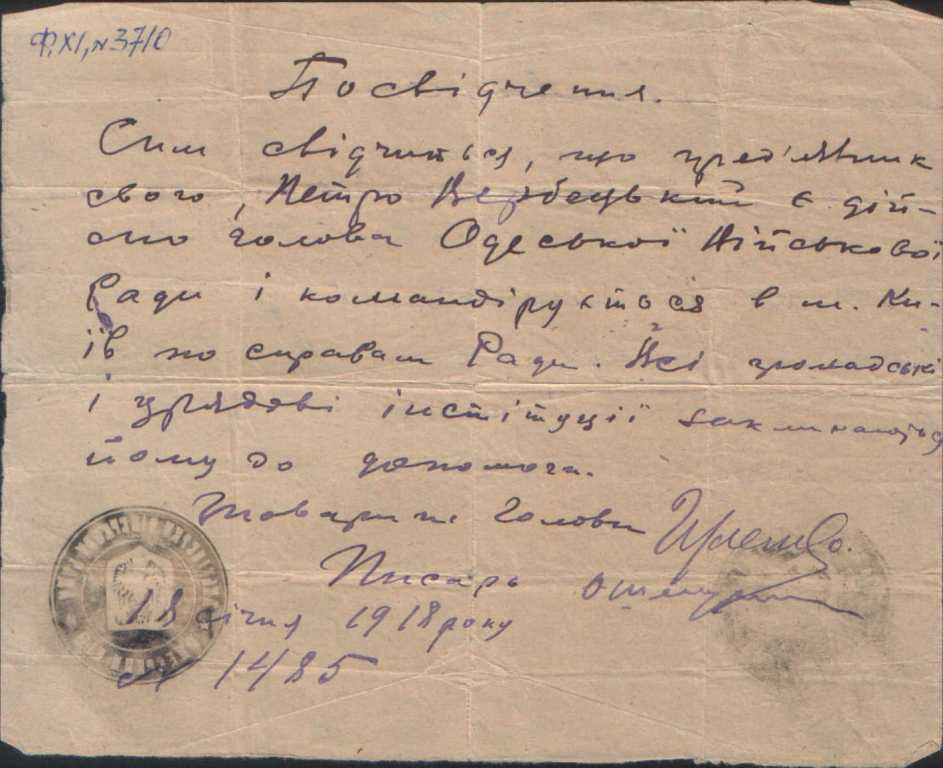 Ф. XI, № 3710
Посвідчення.
Сим свідчиться, що пред'явник
свого, Петро Вербецький є дій-
сно голова Одеської Військової
Ради і командірується в м. Ки-
їв по справам Ради. Всі громадські
і урядові інстітуції закликаються
йому до допомоги.
Товариш Голови
Писарь
18 січня 1918 року
№ 1485